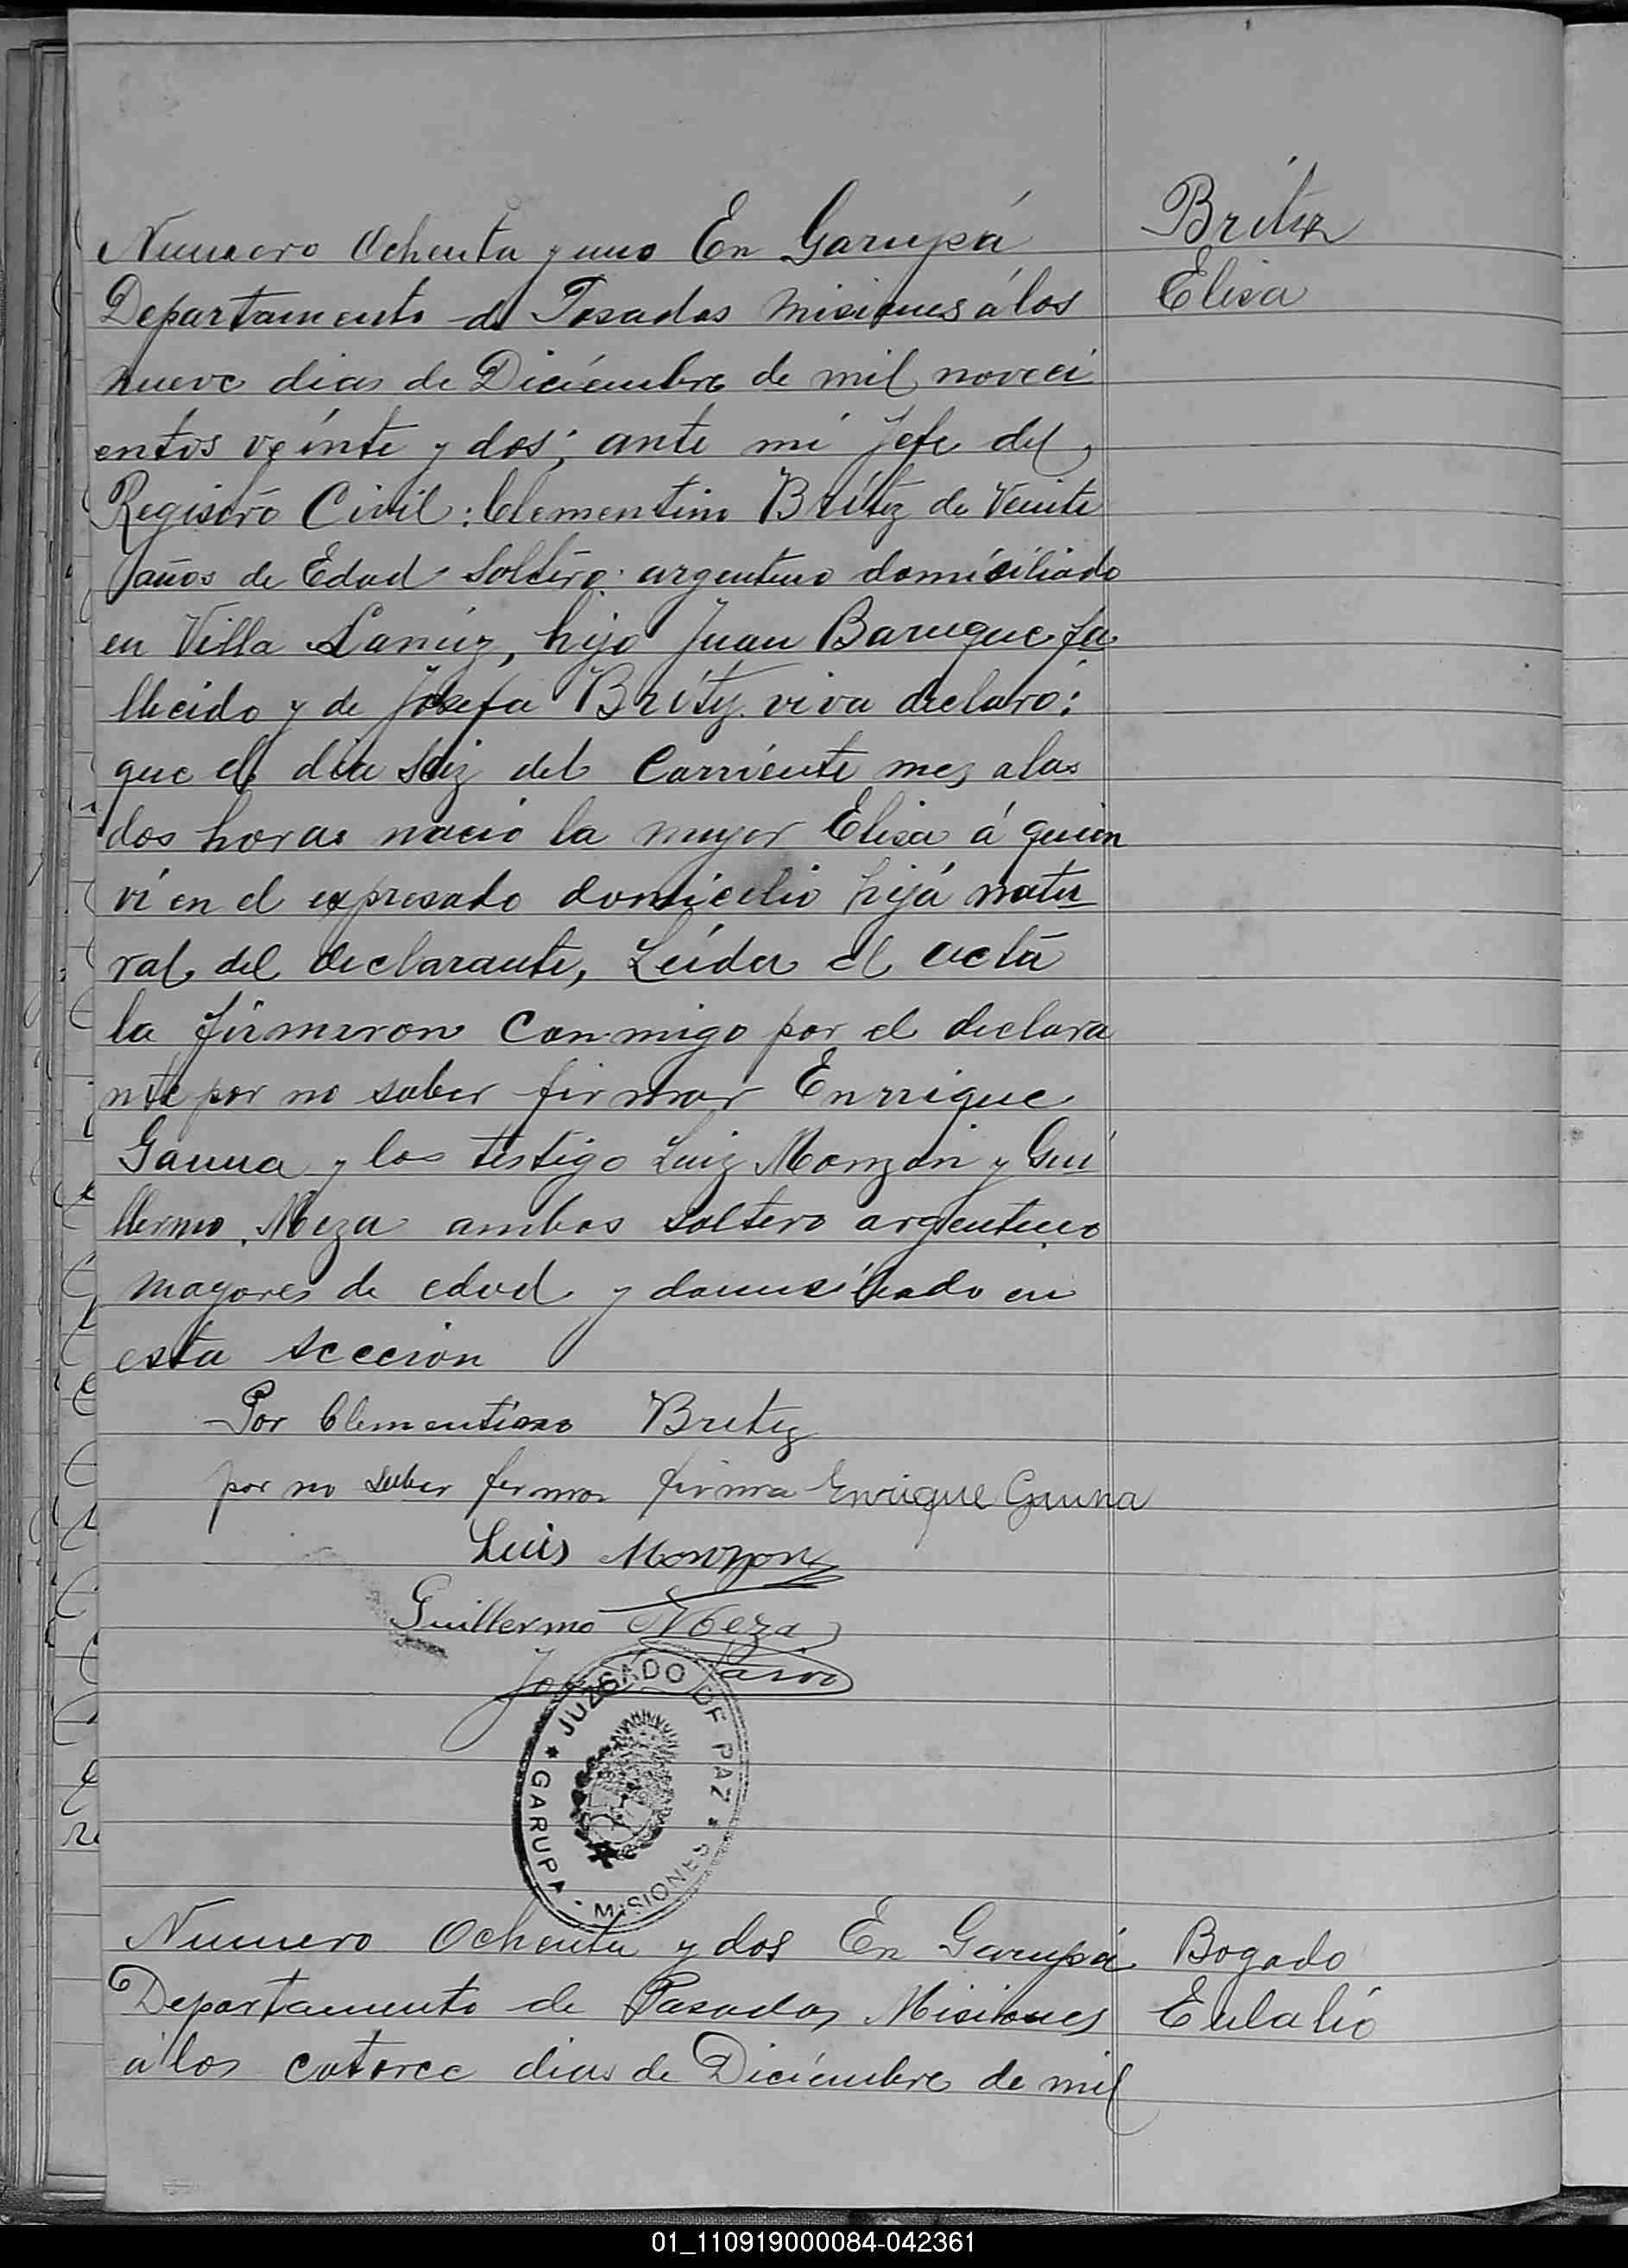 Britez
Elisa
Numero Ochenta y uno En Garupá
Departamento de Posadas Misiones á los
nueve dias de Diciembre de mil noveci
entos veinte y dos; ante mi Jefe del
Registro Civil: Clementino Britez de Veinte
años de Edad soltero argentino domiciliado
en Villa Lanúz, hijo Juan Baruque fa
llecido y de Josefa Britez viva declaró:
que el dia seiz del Corriente mez a las
dos horas nació la mujer Elisa á quien
ví en el expresado domicilio hijá natu
ral del declarante, Leída el acta
la firmaron conmigo por el declara
nte por no saber firmar Enrrique
Gauna y los testigo Luiz Monzón y Gui
llermo Meza ambos soltero argentino
mayores de edad y domisiliado en
esta seccion
Por Clementino Britez
por no saber firmar firma Enrique Gauna
Luis Monzon
Guillermo Meza
JUZGADO DE PAZ
GARUPA
MISIONES
Numero Ochenta y dos En Garupá
Departamento de Posadas Misiones
á los catorce dias de Diciembre de mil
Bogado
Eulalio
01_110919000084-042361